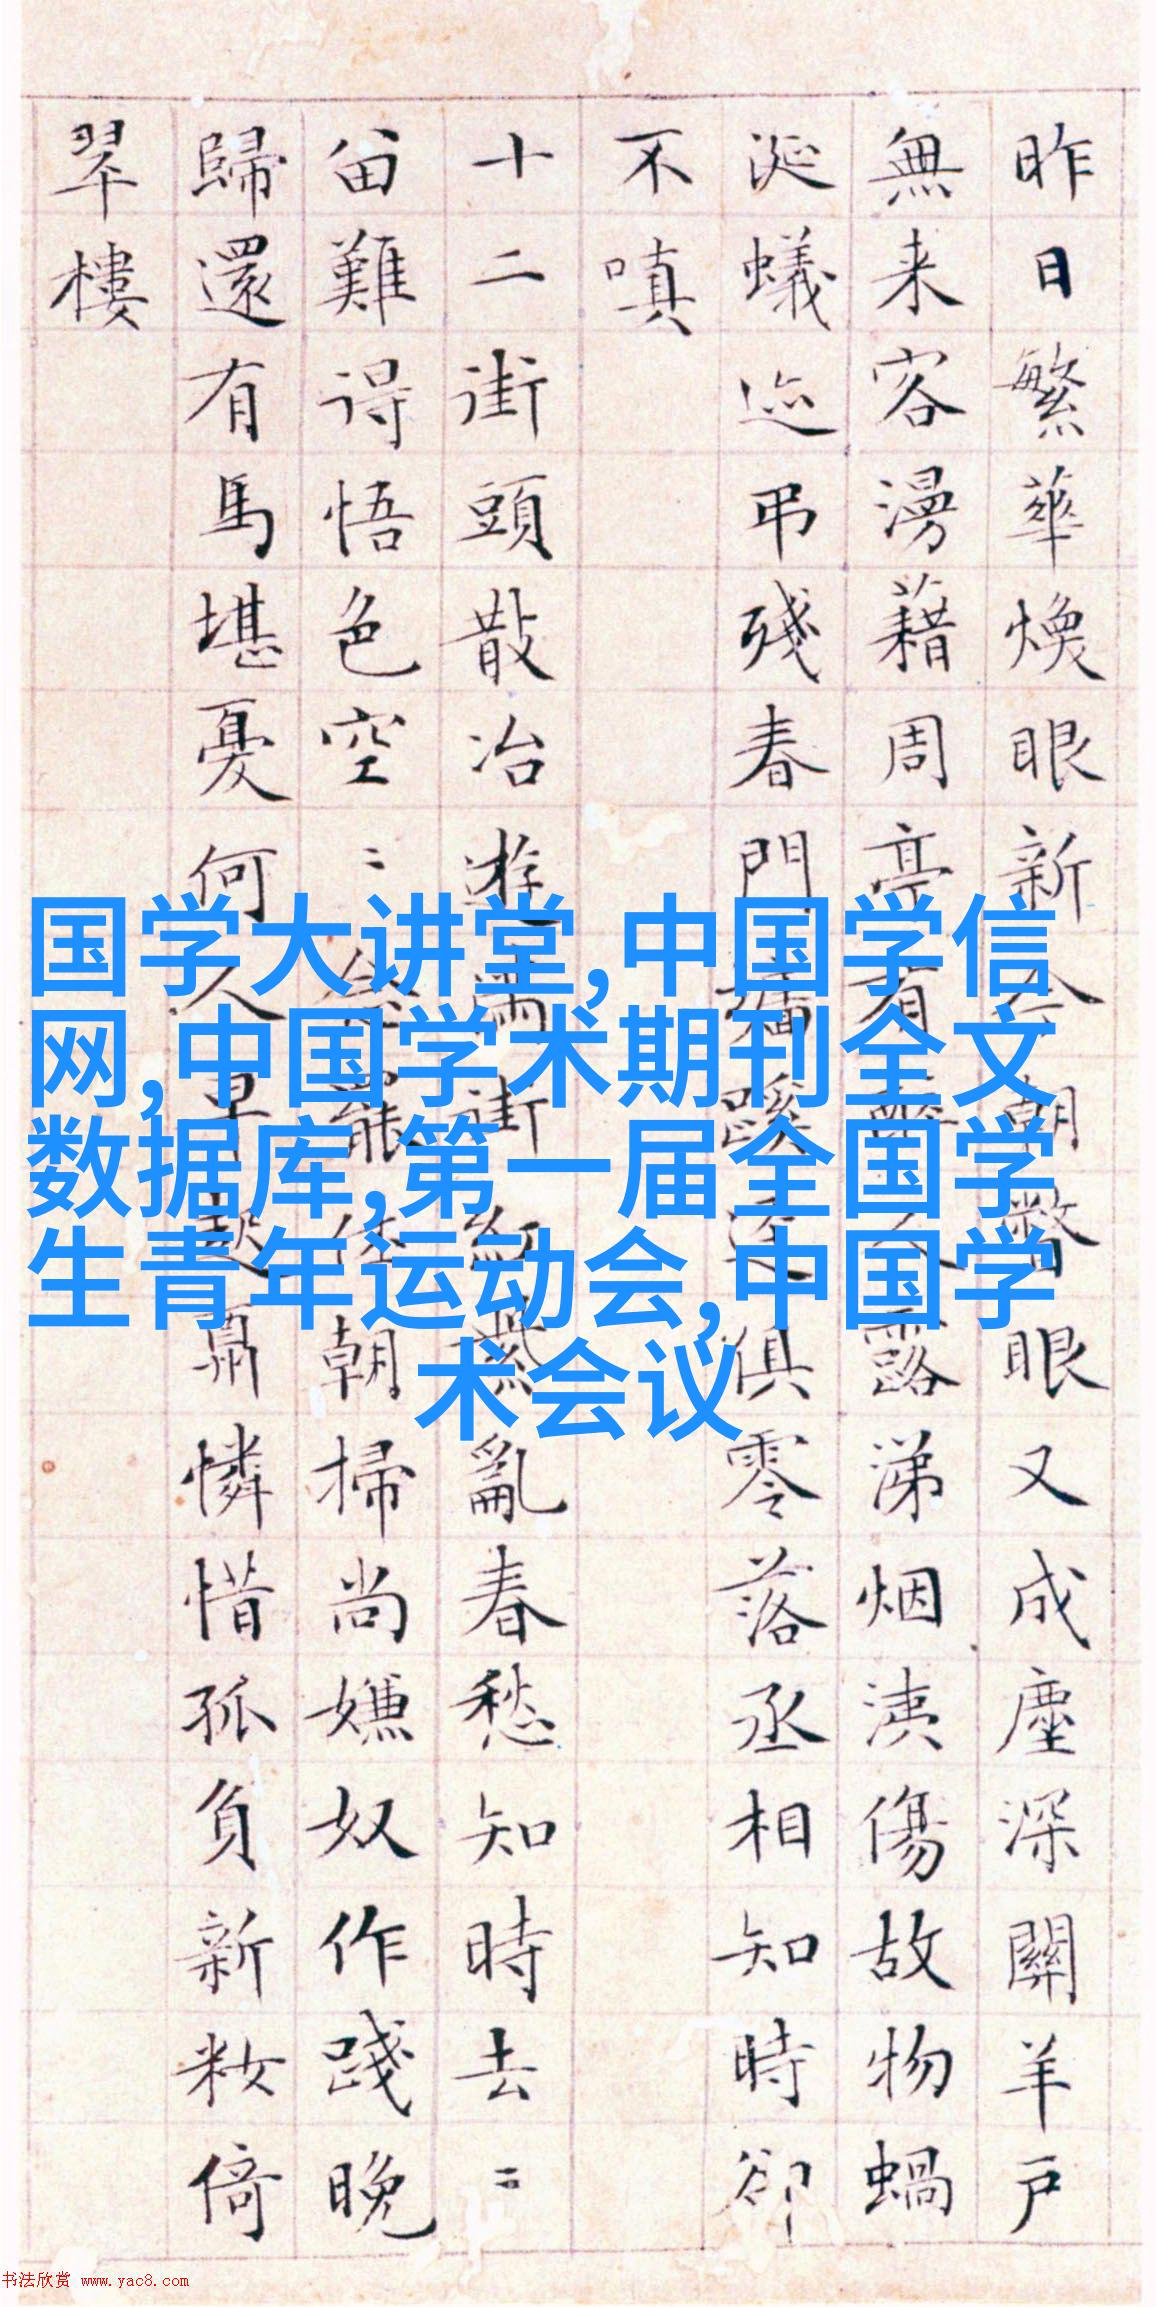 昨日繁華煥眼新今朝瞥眼又成塵深關羊戶
無来客漫藉周亭有人露涕烟洟傷故物蝸
涎蟻迹弔殘春門墻蹊逕俱零落丞相知時卻
不嗔
十二街頭散冶遊滿街紅亂春愁知時去〻
留難得悟色空〻念罷休朝掃尚嫌奴作踐晚
歸還有馬堪憂何人早起肩憐惜孤負新粧倚
翠樓
国学大讲堂,中国学信
网,中国学术期刊全文
数据库,第一届全国学
生青年运动会,中国学
术会议
书法欣赏 www.yac8.com